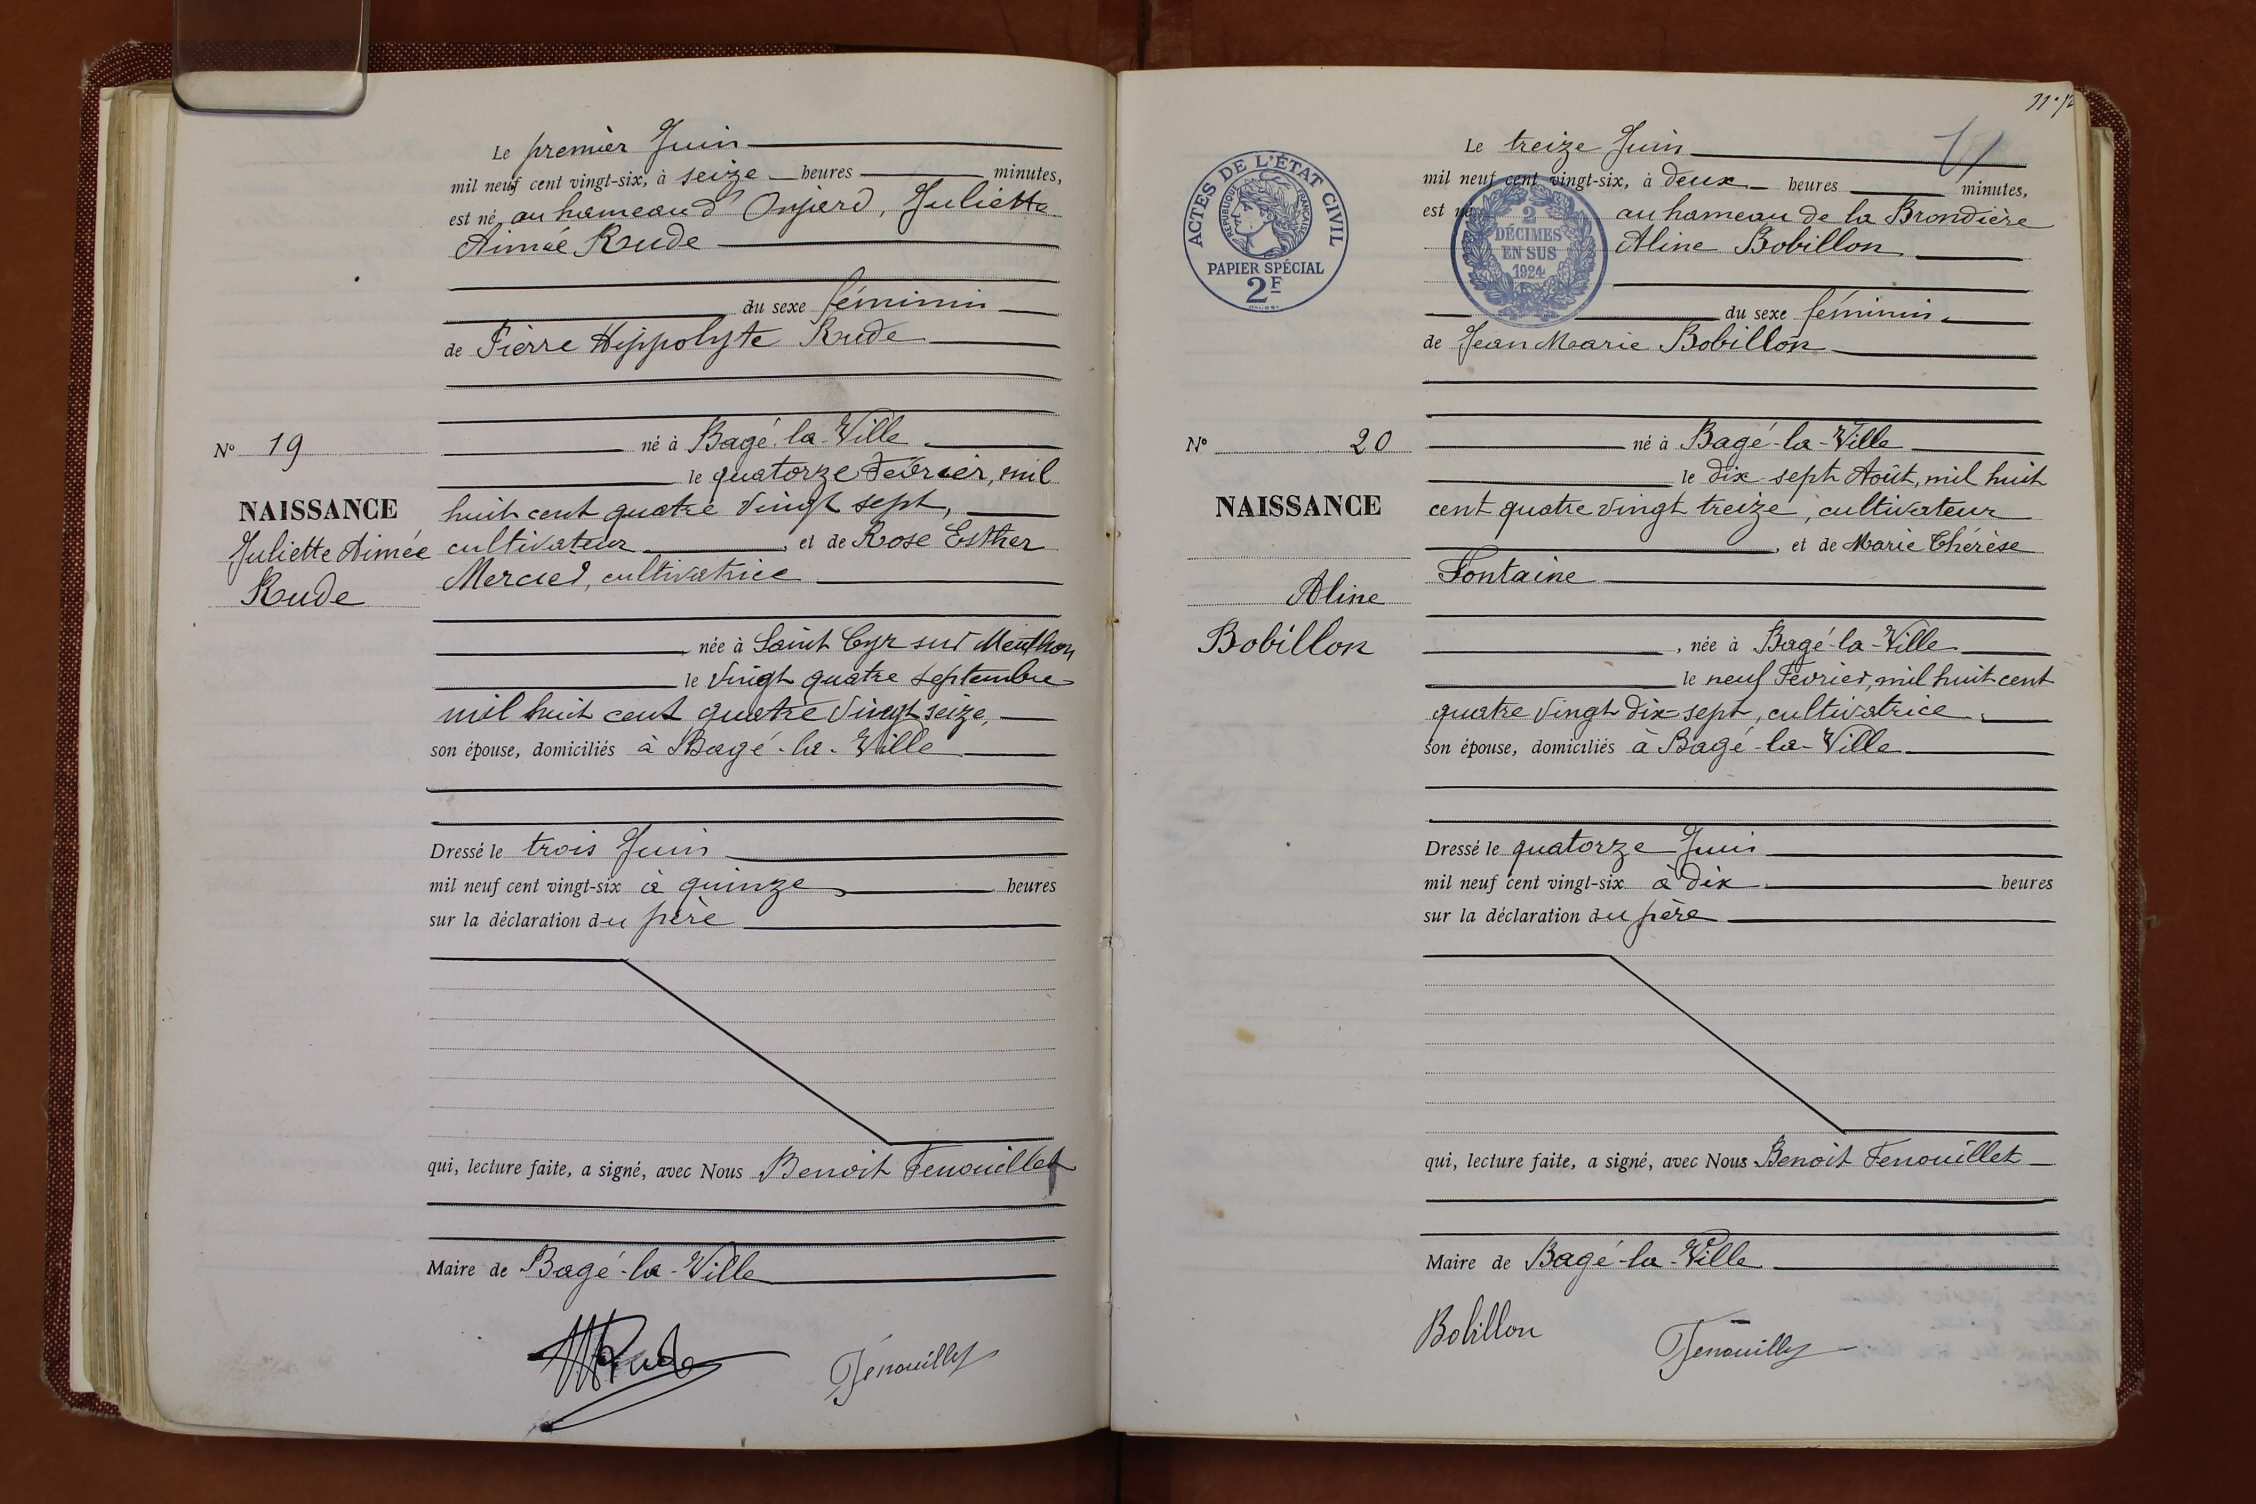 Le premier Juin
mil neuf cent vingt-six, à seize heures minutes,
est né au hameau d'Onjard, Juliette
Aimée Rude
du sexe féminin
de Pierre Hippolyte Rude
né à Bagé-la-Ville
le quatorze Février, mil
huit cent quatre vingt sept,
cultivateur, et de Rose Esther
Mercier, cultivatrice
née à Saint Cyr sur Menthon
le vingt quatre septembre
mil huit cent quatre vingt seize,
son épouse, domiciliés à Bagé-la-Ville
Dressé le trois Juin
mil neuf cent vingt-six à quinze heures
sur la déclaration du père
qui, lecture faite, a signé, avec Nous Benoit Fenouillet
Maire de Bagé-la-Ville
HRude
Fenouillet
N° 19
NAISSANCE
Juliette Aimée
Rude
Le treize Juin
mil neuf cent vingt-six, à deux heures minutes,
est né au hameau de la Brondière
Aline Bobillon
du sexe féminin
de Jean Marie Bobillon
né à Bagé-la-Ville
le dix-sept Août, mil huit
cent quatre vingt treize, cultivateur
, et de Marie Thérèse
Fontaine
, née à Bagé-la-Ville
le neuf Février, mil huit cent
quatre vingt dix-sept, cultivatrice
son épouse, domiciliés à Bagé-la-Ville
Dressé le quatorze Juin
mil neuf cent vingt-six à dix heures
sur la déclaration du père
qui, lecture faite, a signé, avec Nous Benoit Fenouillet
Maire de Bagé-la-Ville
Bobillon
Fenouillet
N° 20
NAISSANCE
Aline
Bobillon
ACTES DE L'ÉTAT CIVIL
RÉPUBLIQUE FRANÇAISE
PAPIER SPÉCIAL
2F
2
DÉCIMES
EN SUS
1924